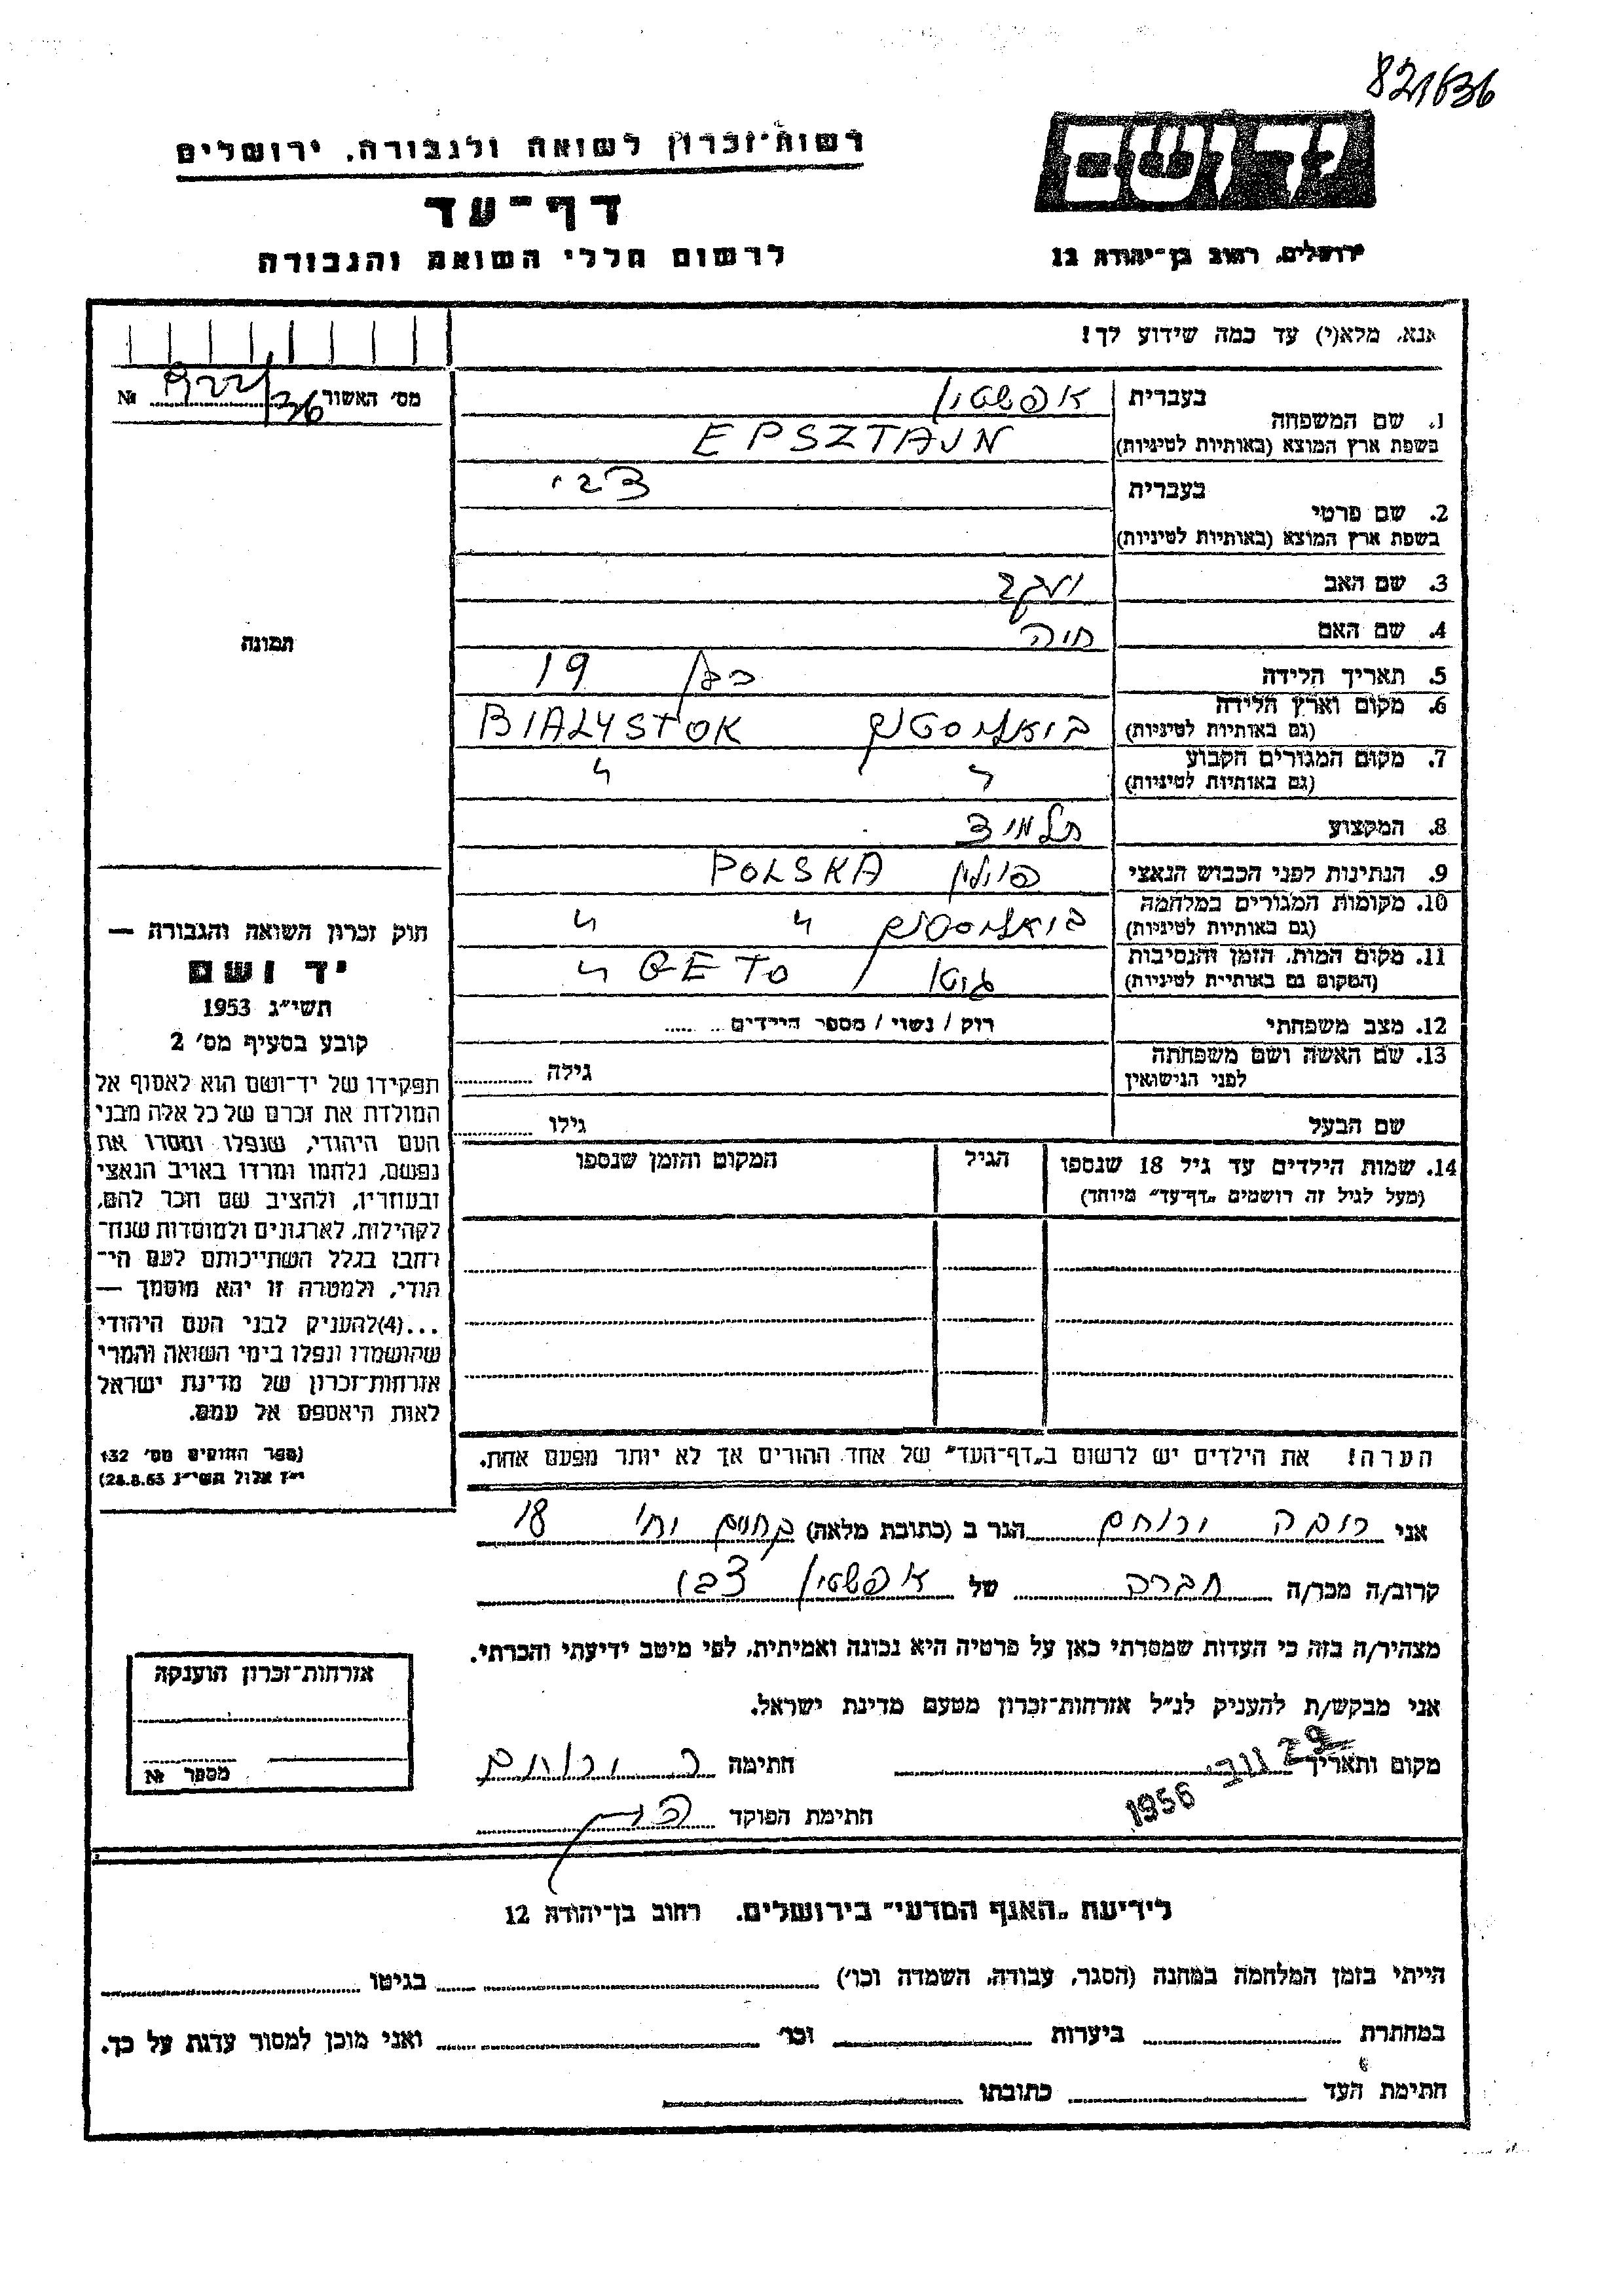 821636
יד ושם
רשות־זכרון לשואה ולגבורה, ירושלים
דף־עד
לרשום חללי השואה והגבורה
ירושלים, רחוב בן־יהודה 12
אנא, מלא(י) עד כמה שידוע לך!
מס׳ האשור №
1. שם המשפחה
בעברית אפשטין
בשפת ארץ המוצא (באותיות לטיניות) EPSZTAJN
2. שם פרטי
בעברית צבי
בשפת ארץ המוצא (באותיות לטיניות)
3. שם האב יעקב
4. שם האם חיה
5. תאריך הלידה בגן 19
6. מקום וארץ הלידה (גם באותיות לטיניות) ביאליסטוק BIALYSTOK
7. מקום המגורים הקבוע (גם באותיות לטיניות) " "
8. המקצוע תלמיד
9. הנתינות לפני הכבוש הנאצי פולין POLSKA
10. מקומות המגורים במלחמה (גם באותיות לטיניות) ביאליסטוק " "
11. מקום המות, הזמן והנסיבות (המקום גם באותיות לטיניות) גיטו GETO "
12. מצב משפחתי רוק / נשוי / מספר הילדים
13. שם האשה ושם משפחתה לפני הנישואין גילה
שם הבעל גילו
14. שמות הילדים עד גיל 18 שנספו
(מעל לגיל זה רושמים „דף־עד״ מיוחד)
הגיל
המקום והזמן שנספו
הערה! את הילדים יש לרשום ב„דף־העד״ של אחד ההורים אך לא יותר מפעם אחת.
תמונה
חוק זכרון השואה והגבורה —
יד ושם
תשי״ג 1953
קובע בסעיף מס׳ 2
תפקידו של יד־ושם הוא לאסוף אל
המולדת את זכרם של כל אלה מבני
העם היהודי, שנפלו ומסרו את
נפשם, נלחמו ומרדו באויב הנאצי
ובעוזריו, ולהציב שם וזכר להם,
לקהילות, לארגונים ולמוסדות שנח־
רבו בגלל השתייכותם לעם הי־
הודי, ולמטרה זו יהא מוסמך —
...(4)להעניק לבני העם היהודי
שהושמדו ונפלו בימי השואה והמרי
אזרחות־זכרון של מדינת ישראל
לאות היאספם אל עמם.
(ספר החוקים מס׳ 132
י״ז אלול תשי״ג 28.8.53)
אני רובה ירוחם הגר ב (כתובת מלאה) 18
קרוב/ה מכר/ה חברה של אפשטין צבי
מצהיר/ה בזה כי העדות שמסרתי כאן על פרטיה היא נכונה ואמיתית, לפי מיטב ידיעתי והכרתי.
אני מבקש/ת להעניק לנ״ל אזרחות־זכרון מטעם מדינת ישראל.
מקום ותאריך 29 נוב׳ 1956 חתימה ר ירוחם
חתימת הפוקד
אזרחות־זכרון הוענקה
מספר №
לידיעת „האגף המדעי״ בירושלים, רחוב בן־יהודה 12
הייתי בזמן המלחמה במחנה (הסגר, עבודה, השמדה וכו׳) בגיטו
במחתרת ביערות וכו׳ ואני מוכן למסור עדות על כך.
חתימת העד כתובתו